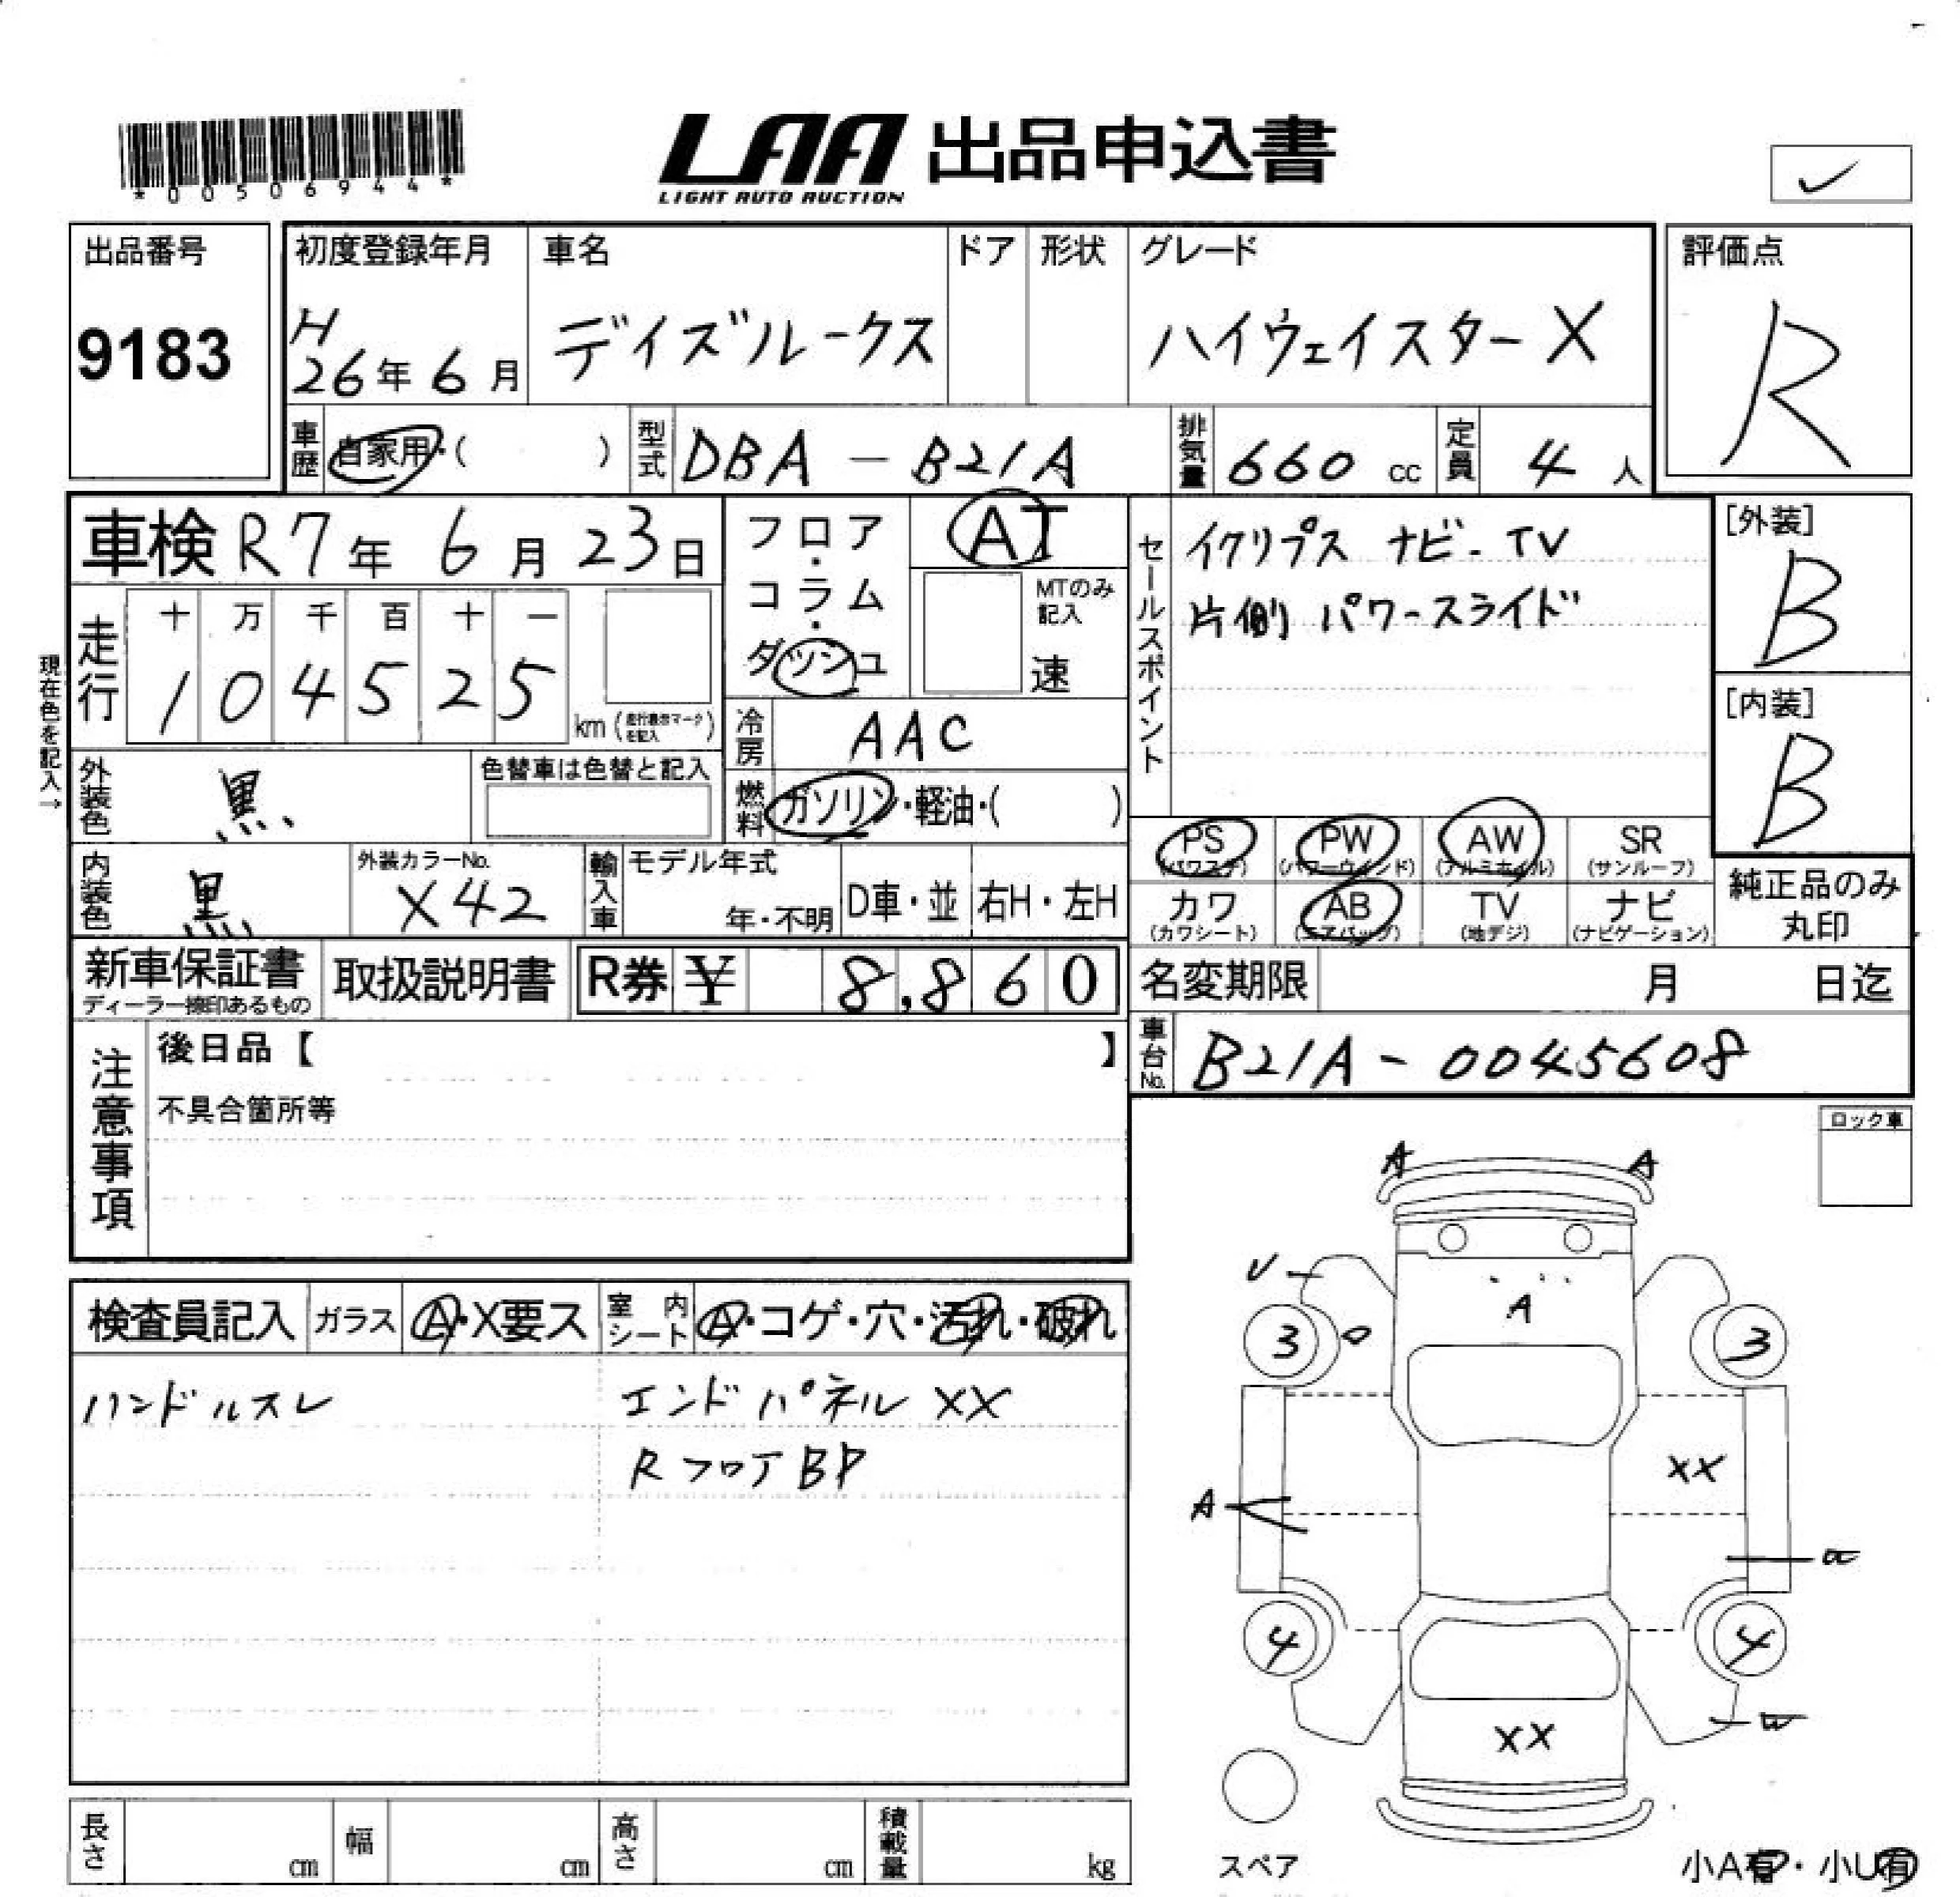 *00506944*
LAA 出品申込書
LIGHT AUTO AUCTION
✓
出品番号
9183
初度登録年月
H
26年 6月
車名
デイズルークス
ドア
形状
グレード
ハイウェイスター X
評価点
R
車歴
自家用・( )
型式
DBA - B21A
排気量
660 cc
定員
4 人
車検 R7年 6月 23日
走行
十 万 千 百 十 一
1 0 4 5 2 5
km (走行表示マークを記入)
現在色を記入→
外装色
黒
色替車は色替と記入
内装色
黒
外装カラーNo.
X42
フロア・コラム・ダッシュ
AT
MTのみ記入
速
冷房
AAC
燃料
ガソリン・軽油・( )
輸入車
モデル年式
年・不明
D車・並
右H・左H
セールスポイント
イクリプス ナビ-TV
片側 パワースライド
[外装]
B
[内装]
B
PS (パワステ)
PW (パワーウインド)
AW (アルミホイル)
SR (サンルーフ)
カワ (カワシート)
AB (エアバッグ)
TV (地デジ)
ナビ (ナビゲーション)
純正品のみ丸印
新車保証書
ディーラー捺印あるもの
取扱説明書
R券 ¥ 8,860
名変期限 月 日迄
車台No.
B21A - 0045608
注意事項
後日品【 】
不具合箇所等
ロック車
検査員記入
ガラス
A・X要ス
室内シート
A・コゲ・穴・汚れ・破れ
ハンドルスレ
エンドパネル XX
RフロアBP
A A
U
A
3
3
XX
A
4
4
W
XX
スペア
小A有・小U有
長さ cm
幅 cm
高さ cm
積載量 kg